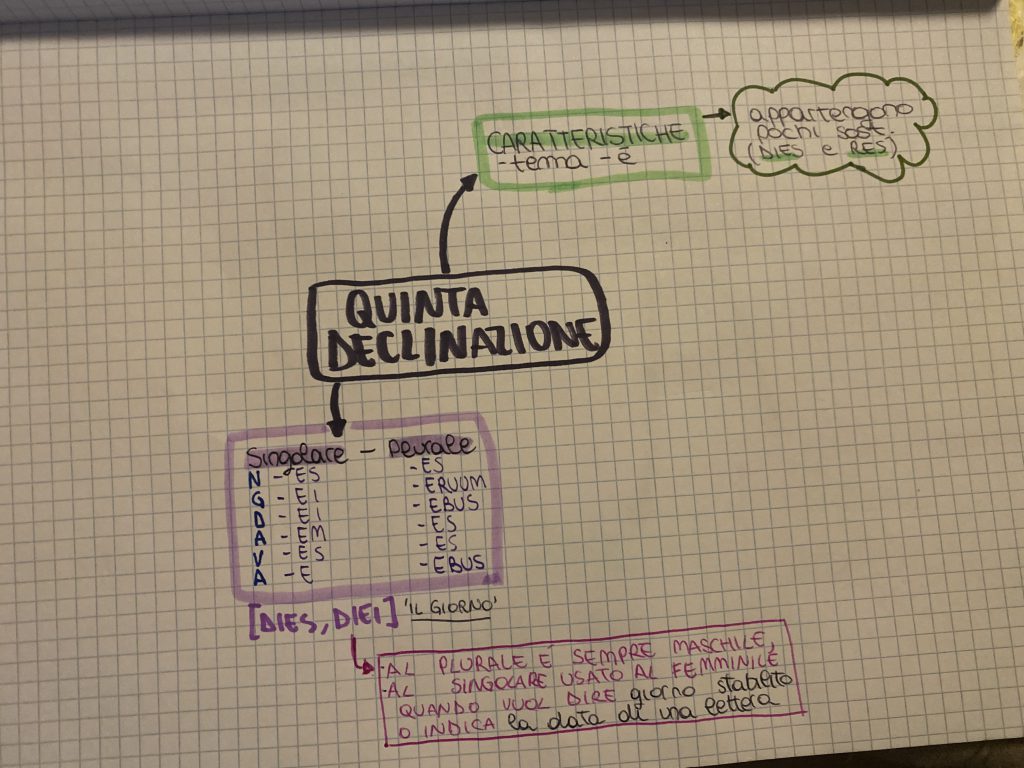 CARATTERISTICHE
-tema -ē
appartengono
pochi sost.
(DIES e RES)
QUINTA
DECLINAZIONE
Singolare - Plurale
N -ES -ES
G -EI -ERUUM
D -EI -EBUS
A -EM -ES
V -ES -ES
A -E -EBUS
[DIES, DIEI] 'IL GIORNO'
-AL PLURALE È SEMPRE MASCHILE,
-AL SINGOLARE USATO AL FEMMINILE
QUANDO VUOL DIRE giorno stabilito
O INDICA la data di una lettera